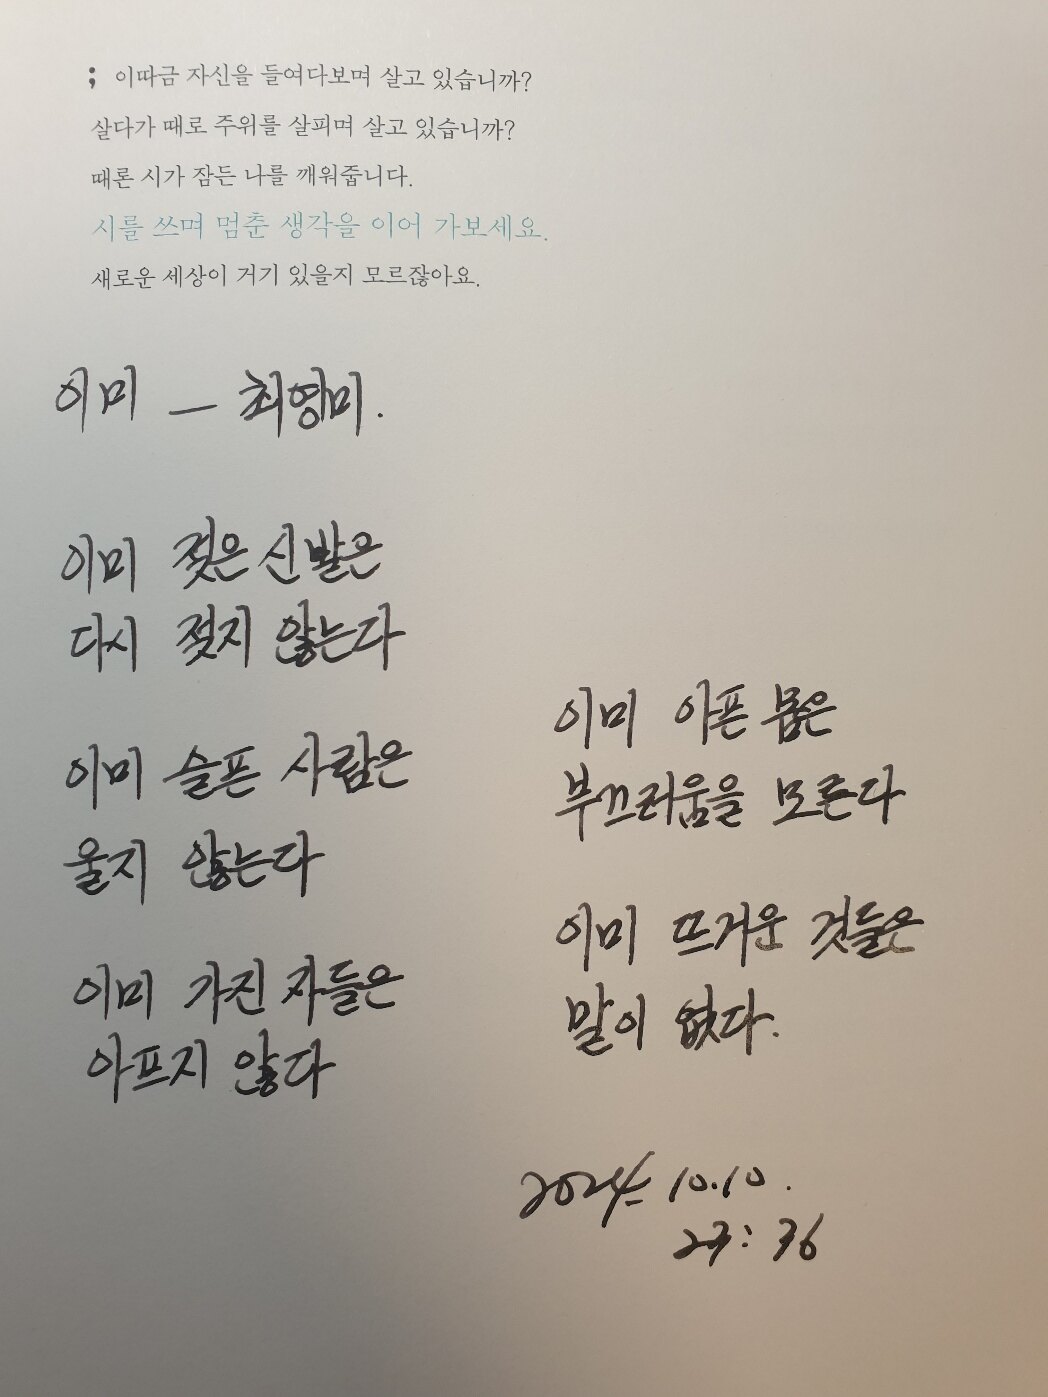 ; 이따금 자신을 들여다보며 살고 있습니까?
살다가 때로 주위를 살피며 살고 있습니까?
때론 시가 잠든 나를 깨워줍니다.
시를 쓰며 멈춘 생각을 이어 가보세요.
새로운 세상이 거기 있을지 모르잖아요.
이미 — 최영미.
이미 젖은 신발은
다시 젖지 않는다
이미 슬픈 사람은
울지 않는다
이미 가진 자들은
아프지 않다
이미 아픈 몸은
부끄러움을 모른다
이미 뜨거운 것들은
말이 없다.
2024 10.10.
23:36